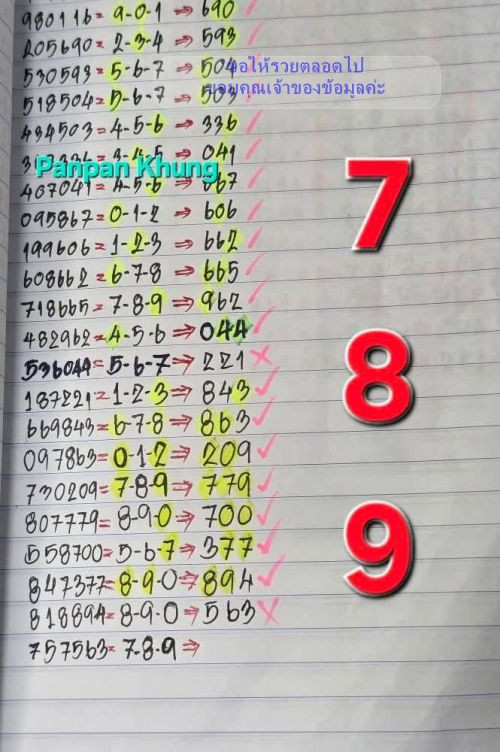 980116 = 9-0-1 ⇒ 690 ✓
205690 = 2-3-4 ⇒ 593 ✓
530593 = 5-6-7 ⇒ 504
ขอให้รวยตลอดไป
518504 = 5-6-7 ⇒ 503
ขอบคุณเจ้าของข้อมูลค่ะ
434503 = 4-5-6 ⇒ 336 ✓
336 = 3-4-5 ⇒ 041 ✓
Panpan Khung
407041 = 4-5-6 ⇒ 867 ✓
095867 = 0-1-2 ⇒ 606 ✓
199606 = 1-2-3 ⇒ 662 ✓
608662 = 6-7-8 ⇒ 665 ✓
718665 = 7-8-9 ⇒ 962 ✓
482962 = 4-5-6 ⇒ 044 ✓
536044 = 5-6-7 ⇒ 221 ✗
187221 = 1-2-3 ⇒ 843 ✓
669843 = 6-7-8 ⇒ 863 ✓
097863 = 0-1-2 ⇒ 209 ✓
730209 = 7-8-9 ⇒ 779 ✓
807779 = 8-9-0 ⇒ 700 ✓
558700 = 5-6-7 ⇒ 377 ✓
847377 = 8-9-0 ⇒ 894 ✓
818894 = 8-9-0 ⇒ 563 ✗
757563 = 7-8-9 ⇒
7
8
9